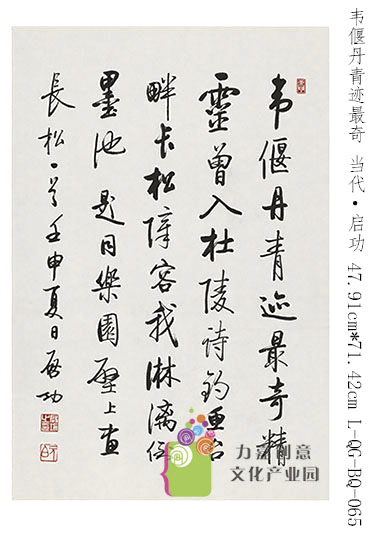 韦偃丹青迹最奇精
靈曾入杜陵诗钓鱼台
畔长松障容我淋漓倾
墨池 题同樂園壁上画
長松一首壬申夏日启功
韦偃丹青迹最奇 当代·启功 47.91cm*71.42cm L-QG-BQ-065
力嘉创意
文化产业园